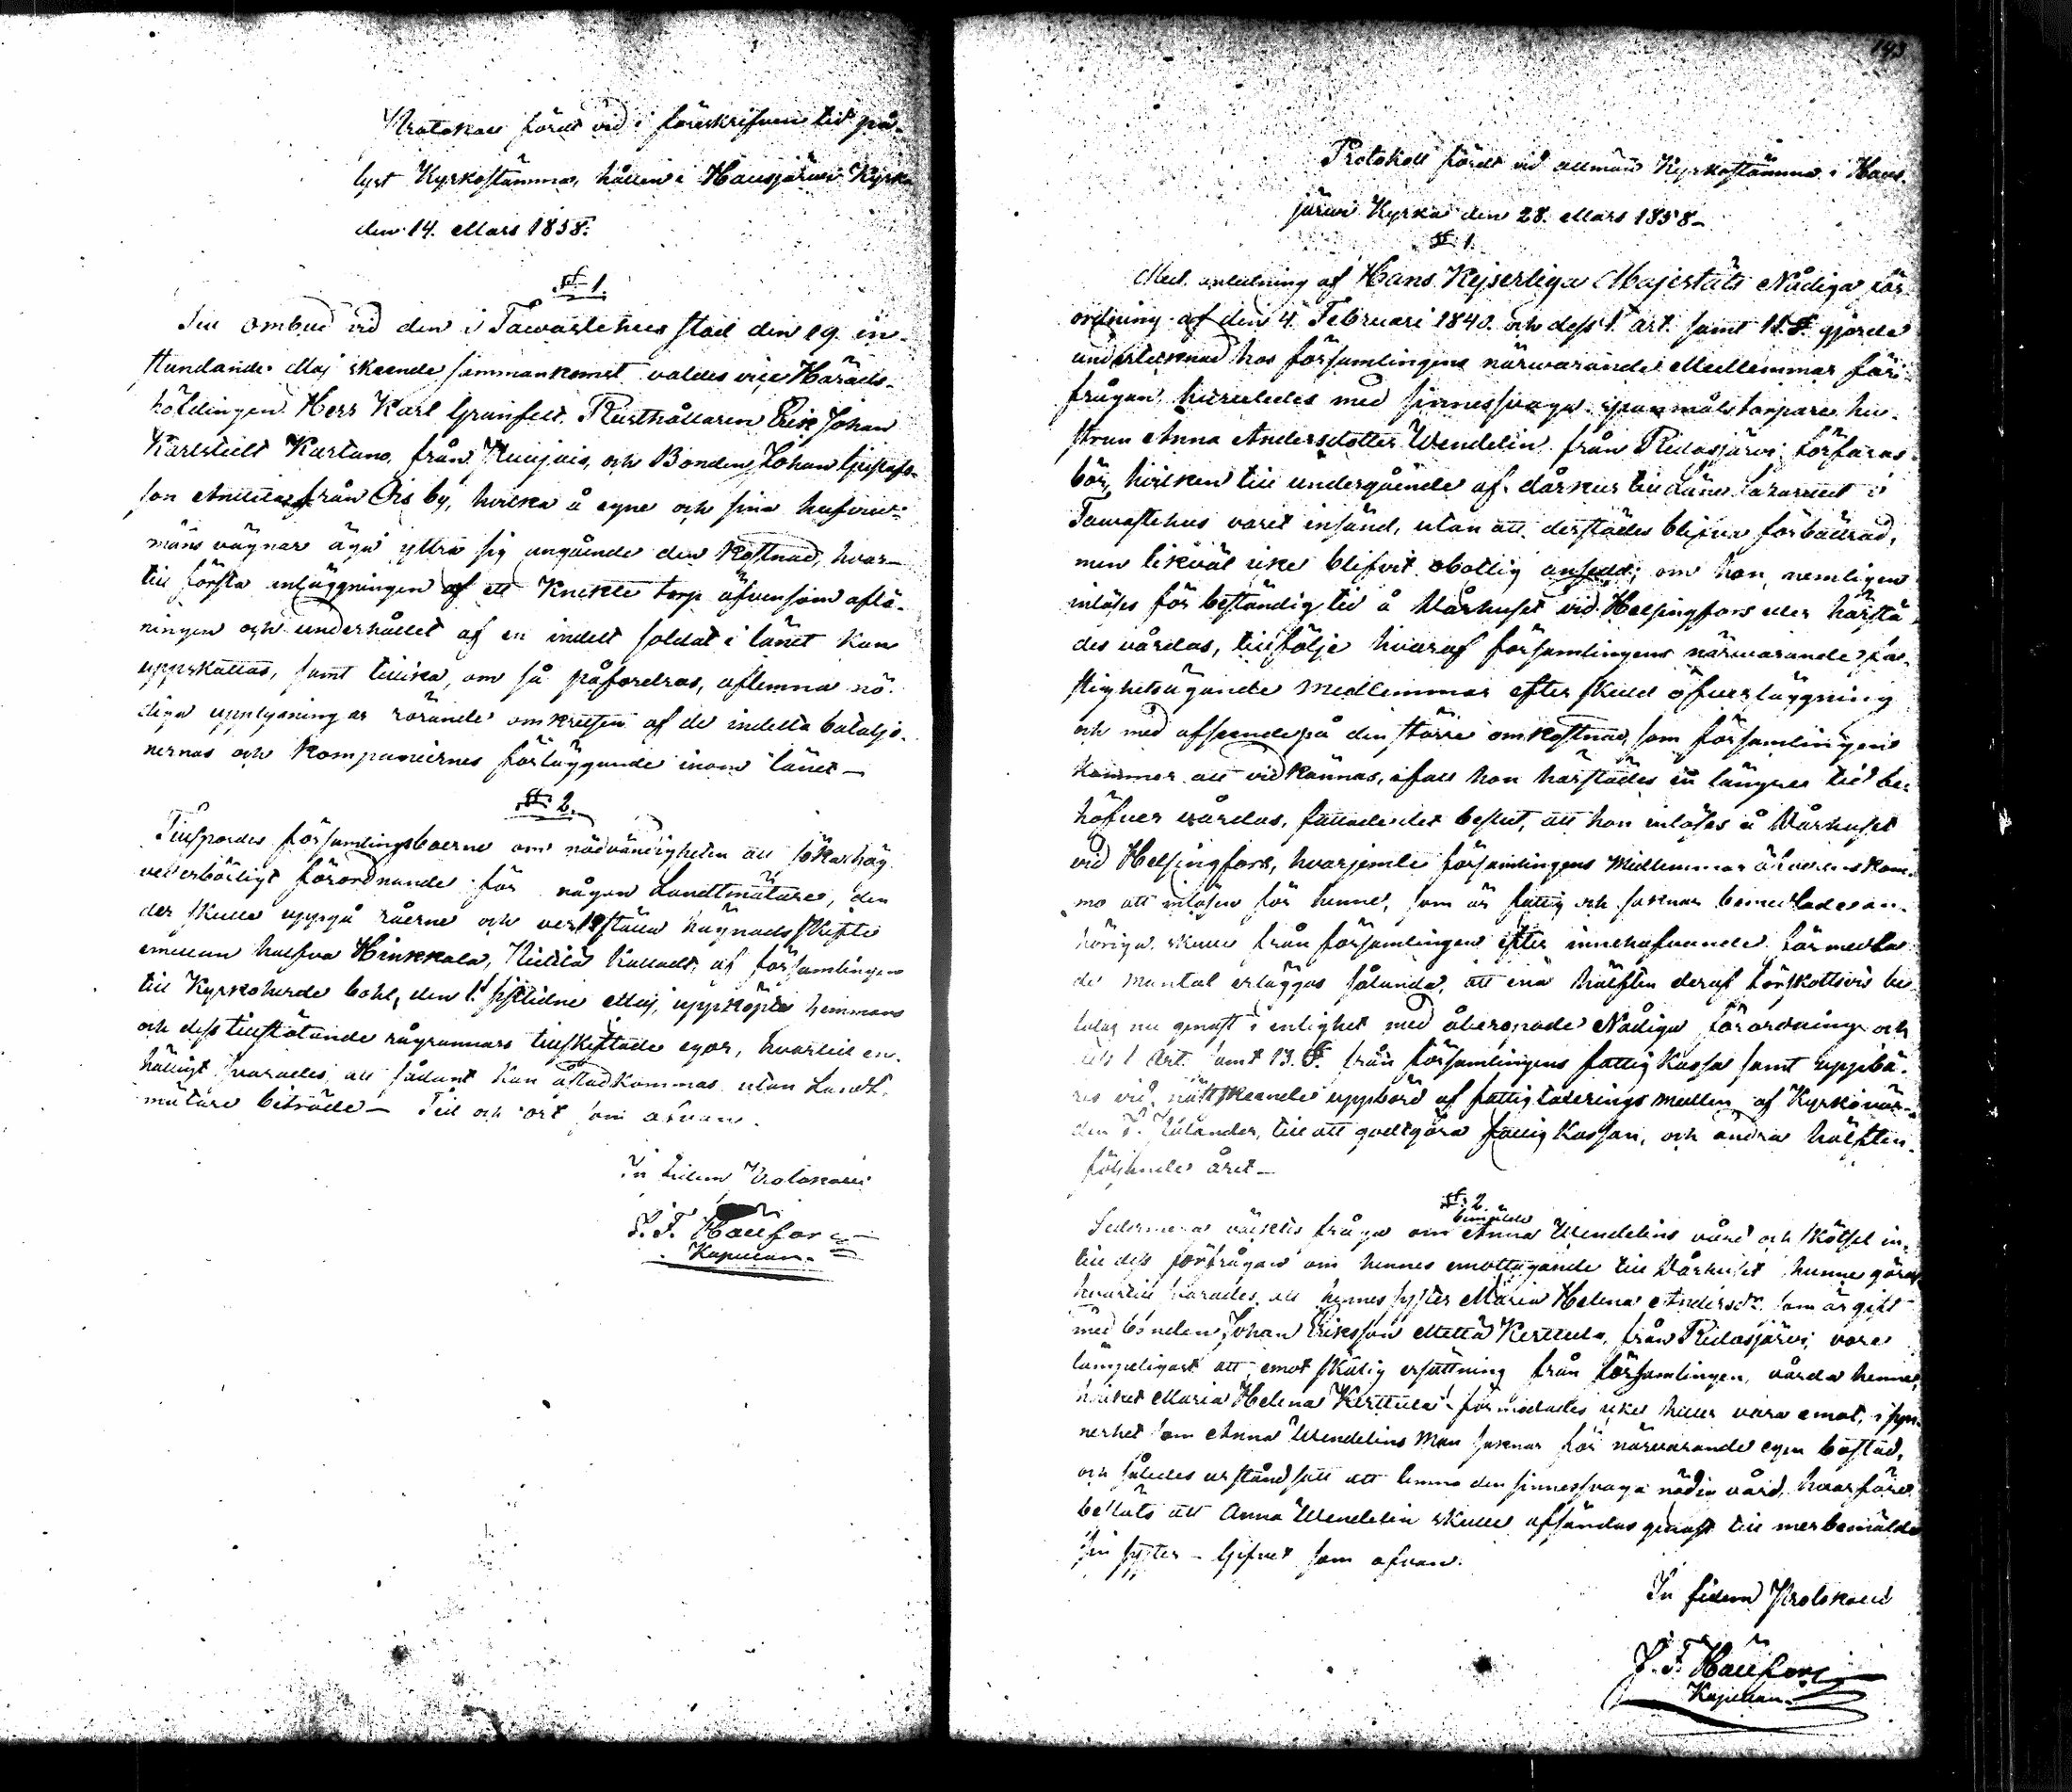 Protokoll fördt vid i föreskrifven tid på-
lyst Kyrkostämma, hållen i Hausjärwi Kyrka
den 14. Mars 1858.
§ 1.
Till ombud vid den i Tawastehus stad den 19. in-
stundande Maj skeende sammankomst valdes vice Härads-
höfdingen Herr Karl Granfelt, Rusthållaren Erik Johan
Karlstedt Kartano, från Kuujois, och Bonden Johan Gustafs-
son Anttila från Ois by, hvilka å egne och sina hufvud-
mäns vägnar äga yttra sig angående den kostnad, hvar-
till första inläggningen af ett Knekte torp äfvensom aflö-
ningen och underhållet af en indelt soldat i länet kan
uppskattas, samt tillika, om så påfordras, aflemna nö-
diga upplysningar rörande omkretsen af de indelta bataljo-
nernas och Kompaniernes förläggande inom länet —
§ 2.
Tillspordes församlingsboerne om nödvändigheten att söka hög
vederbörligt förordnande för någon Landtmätare, den
der skulle uppgå råerne och verkställa hägnadsskifte
emellan halfva Hinkkala, Kallads, af församlingen
till Kyrkoherde bohl, den 1. sistlidne Maj, uppköpta hemmans
och dess tillstötande rågrannars tillskiftade egor, hvartill en-
hälligt svarades, att sådant kan åstadkommas utan Landt-
mätare biträde — Tid och ort som ofvan.
In fidem Protokolli
J. F. Hällfors
Kapellan.
143
Protokoll fördt vid allmän Kyrkostämma i Haus-
järwi Kyrka den 28. Mars 1858 —
§ 1.
Med anledning af Hans Kejserliga Majestäts Nådiga för-
ordning af den 4. Februari 1840. och dess 1. art. samt 11. § gjorde
undertecknad hos församlingens närwarande Medlemmar för-
frågan huruledes med sinnessvaga spanmålstorpare hu-
strun Anna Andersdotter Wendelin från Ridasjärvi förfaras
bör, hvilken till undergående af dårkur till Läns lazarettet i
Tawastehus varit insänd, utan att derstädes blifva förbättrad,
men likväl icke blifvit obotlig ansedd; om hon nemligen
inlöses för beständig tid å Dårhuset vid Helsingfors eller härstä-
des vårdas, till följe hvaraf församlingens närwarande fa-
stighetsägande medlemmar efter skedd öfverläggning
och med afseende på den större omkostnad, som församlingen
kommer att vidkännas, ifall hon härstädes en längre tid be-
höfver vårdas, fattade det beslut, att hon inlöses å Dårhuset
vid Helsingfors, hvarjemte församlingens Medlemmar öfverenskom-
mo att inlösen för henne, som är fattig och saknar bemedlade an-
höriga skulle från församlingen efter innehafvande förmedla-
de mantal erläggas sålunda, att ena hälften deraf förskottsvis be-
talas nu genast i enlighet med åberopade Nådiga förordning och
dess 1 Art. samt 13. §. från församlingens fattig Kassa samt uppbä-
res vid näst skeende uppbörd af fattigtaxerings medlen af Kyrkovär-
den till att godtgöra fattig Kassan, och andra hälften
följande året —
§ 2.
bemälde
Sedermera väcktes fråga om Anna Wendelins vård och skötsel in-
till dess förfrågan om hennes emottagande till Dårhuset hunne göras
hvartill svarades, att hennes syster Maria Helena Andersdr. som är gift
med bonden Johan Eriksson Mettä Kerttula, från Ridasjärvi, vore
lämpeligast att, emot skälig ersättning från församlingen, vårda henne,
hvilket Maria Helena Kerttula förmodades icke heller vara emot, i syn-
nerhet som Anna Wendelins Man saknar för närwarande egen bostad,
och således ur stånd satt att lemna den sinnessvaga nödig vård, hvarföre
beslöts att Anna Wendelin skulle afsändas genast till merbemälde
sin syster — Gifvet som ofvan.
In fidem Protokolli
J. F. Hällfors
Kapellan.